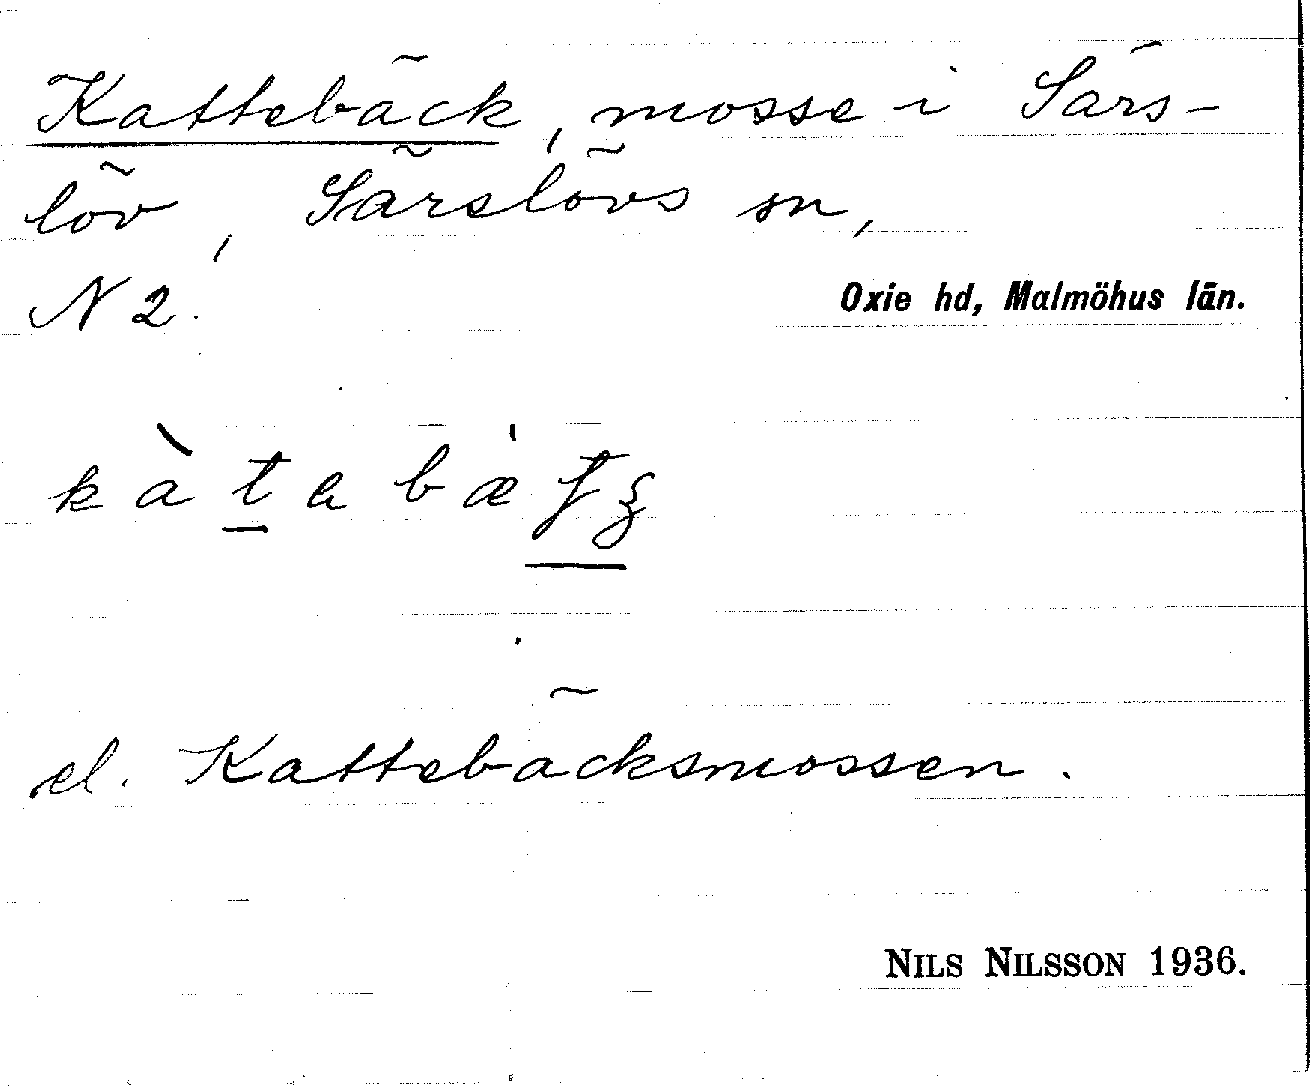 Kattebäck, mosse i Särs-
löv, Särslövs sn,
N 2.
Oxie hd, Malmöhus län.
el. Kattebäcksmossen.
NILS NILSSON 1936.